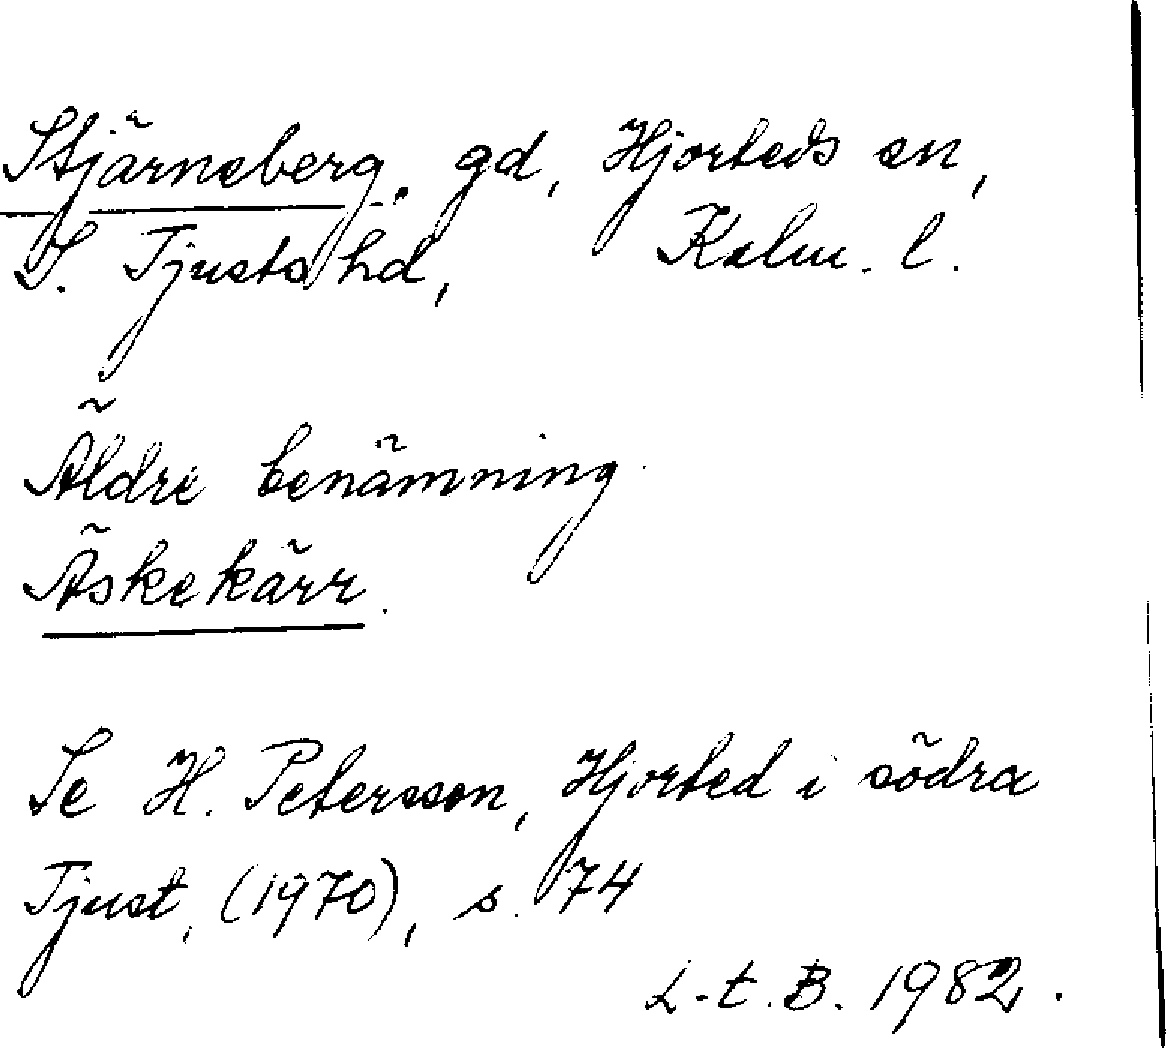 Stjärneberg, gd, Hjorteds sn,
S. Tjusts hd, Kalm. l.
Äldre benämning
Äskekärr.
Se H. Petersson, Hjorted i södra
Tjust, (1970), s. 74
L-t. B. 1982.